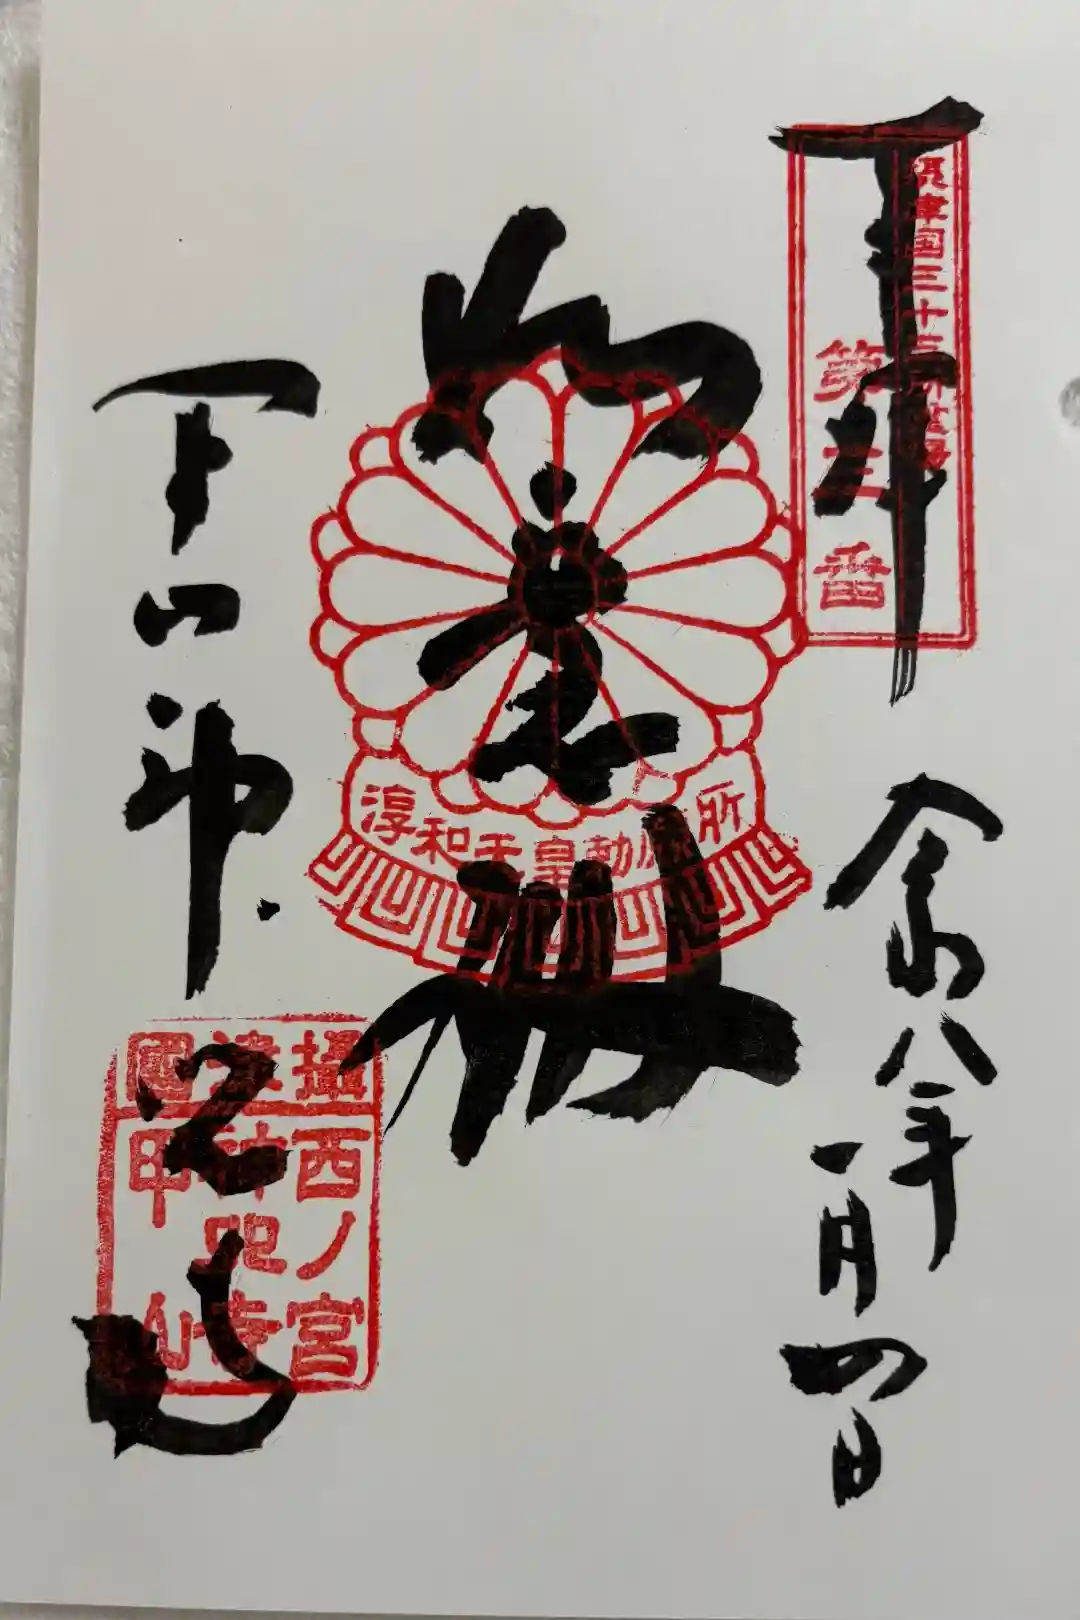 奉拝
摂津国三十三所霊場
第三番
令和八年一月四日
如意輪
淳和天皇勅願所
甲山神呪寺
攝津國
西ノ宮
神呪寺
甲山